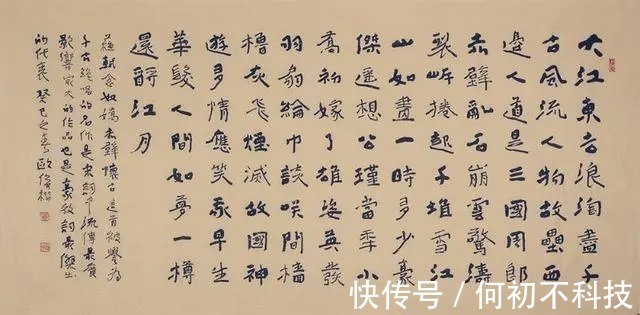 大江東去浪淘盡千
古風流人物故壘西
邊人道是三國周郎
赤壁亂石崩雲驚濤
裂岸捲起千堆雪江
山如畫一時多少豪
傑遥想公瑾當秊小
喬初嫁了雄姿英發
羽扇綸巾談咲間檣
櫓灰飛煙滅故國神
遊多情應笑我早生
華髮人間如夢一樽
還酹江月
蘇軾念奴嬌赤壁懷古這首被譽為
千古絕唱的名作是宋詞中流傳最廣
影響最大的作品也是豪放詞最傑出
的代表癸巳之春歐
快传号 / 何初不科技